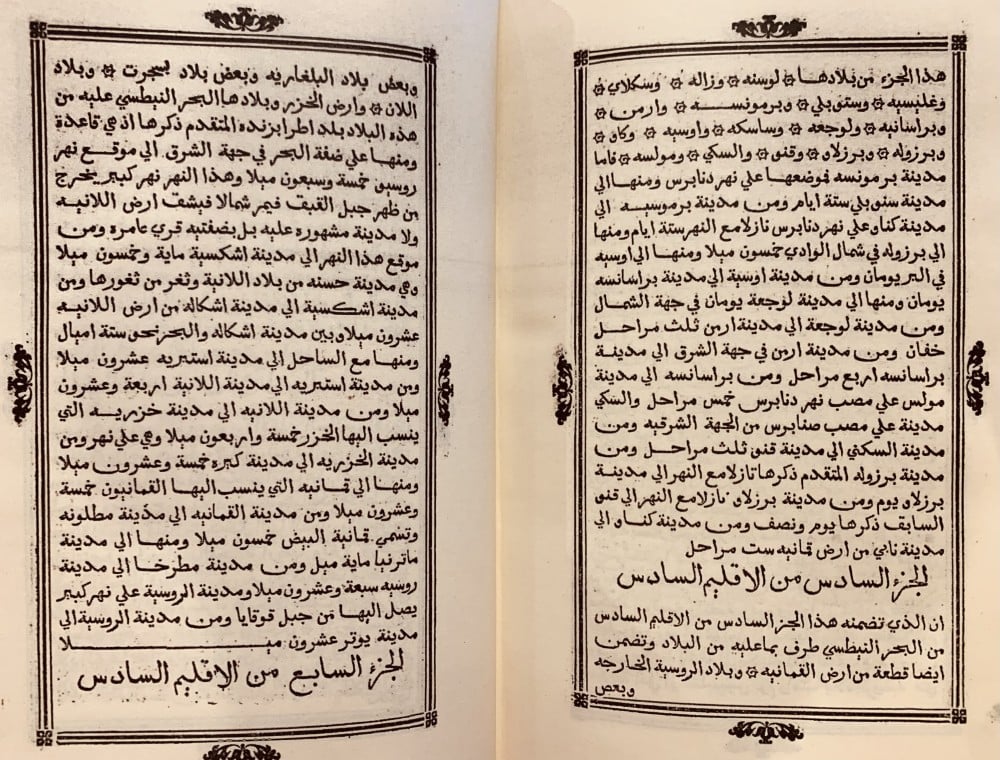 هذا الجزء من بلادها ۞ لوسنه ۞ وزاله ۞ وسكلاي ۞
وغليسيه ۞ وستوبلي ۞ وبرمونسه ۞ وارمن ۞
وبراسانيه ۞ ولوجغه ۞ وساسكه ۞ واوسيه ۞ وكاو ۞
وبرزوله ۞ وبرزلاو ۞ وقنو ۞ والسكي ۞ ومولسه ۞ فاما
مدينة برمونسه فموضعها علي نهر دنابرس ومنها الي
مدينة سنوبلي ستة ايام ومن مدينة برموسيه الي
مدينة كناو علي نهر دنابرس نازلا مع النهر ستة ايام ومنها
الي برزوله في شمال الوادي خمسون ميلا ومنها الي اوسيه
في البر يومان ومن مدينة اوسية الي مدينة براسانسه
يومان ومنها الي مدينة لوجغة يومان في جهة الشمال
ومن مدينة لوجغة الي مدينة ارمن ثلث مراحل
خفان ومن مدينة ارمن في جهة الشرق الي مدينة
براسانسه اربع مراحل ومن براسانسه الي مدينة
مولس علي مصب نهر دنابرس خمس مراحل والسكي
مدينة علي مصب صنابرس من الجهة الشرقيه ومن
مدينة السكني الي مدينة قنو ثلث مراحل ومن
مدينة برزوله المتقدم ذكرها نازلا مع النهر الي مدينة
برزلاو يوم ومن مدينة برزلاو نازلا مع النهر الي قنو
السابق ذكرها يوم ونصف ومن مدينة كناو الي
مدينة نابي من ارض قمانيه ست مراحل
الجزء السادس من الاقليم السادس
ان الذي تضمنه هذا الجز السادس من الاقليم السادس
من البحر النيطسي طرف بما عليه من البلاد وتضمن
ايضا قطعة من ارض القمانيه ۞ وبلاد الروسية الخارجه
وبعض
وبعض بلاد البلغاريه وبعض بلاد بسجرت ۞ وبلاد
اللان ۞ وارض الخزر وبلادها البحر النيطسي عليه من
هذه البلاد بلد اطرابزنده المتقدم ذكرها اذ هي قاعدة
ومنها علي ضفة البحر في جهة الشرق الي موقع نهر
روسيو خمسة وسبعون ميلا وهذا النهر نهر كبير يخرج
من ظهر جبل القبق فيمر شمالا فيشق ارض اللانيه
ولا مدينة مشهوره عليه بل بضفتيه قري عامره ومن
موقع هذا النهر الي مدينة اشكسية ماية وخمسون ميلا
وهي مدينة حسنه من بلاد اللانية وثغر من ثغورها ومن
مدينة اشكسية الي مدينة اشكاله من ارض اللانيه
عشرون ميلا وبين مدينة اشكاله والبحر نحو ستة اميال
ومنها مع الساحل الي مدينة استبريه عشرون ميلا
ومن مدينة استبريه الي مدينة اللانية اربعة وعشرون
ميلا ومن مدينة اللانيه الي مدينة خزريه التي
ينسب اليها الخزر خمسة واربعون ميلا وهي علي نهر ومن
مدينة الخزريه الي مدينة كبره خمسة وعشرون ميلا
ومنها الي قمانيه التي ينسب اليها القمانيون خمسة
وعشرون ميلا ومن مدينة القمانيه الي مدينة مطلونه
وتسمي قمانية البيض خمسون ميلا ومنها الي مدينة
ماترنيا ماية ميل ومن مدينة مطرخا الي مدينة
روسيه سبعة وعشرون ميلا ومدينة الروسية علي نهر كبير
يصل اليها من جبل قوقايا ومن مدينة الروسية الي
مدينة يوتر عشرون ميلا
الجزء السابع من الاقليم السادس